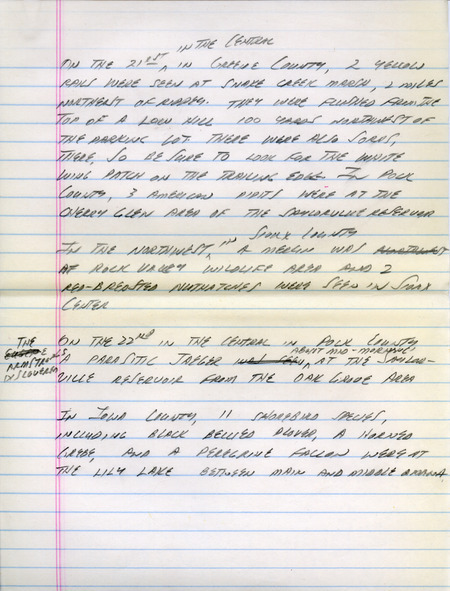 IN THE CENTRAL
ON THE 21ST ^ IN GREENE COUNTY, 2 YELLOW
RAILS WERE SEEN AT SNAKE CREEK MARSH, 2 MILES
NORTHEST OF RIPPEY. THEY WERE FLUSHED FROM THE
TOP OF A LOW HILL 100 YARDS NORTHWEST OF
THE PARKING LOT. THERE WERE ALSO SORAS,
THERE, SO BE SURE TO LOOK FOR THE WHITE
WING PATCH ON THE TRAILING EDGE. IN POLK
COUNTY, 3 AMERICAN PIPITS WERE AT THE
CHERRY GLEN AREA OF THE SAYLORVILLE RESERVOIR
IN THE NORTHWEST, ^ IN SIOUX COUNTY A MERLIN WAS
AT ROCK VALLEY WILDLIFE AREA AND 2
RED-BREASTED NUTHATCHES WERE SEEN IN SIOUX
CENTER
ON THE 22ND IN THE CENTRAL IN POLK COUNTY
THE ARMSTRONGS DISCOVERED
A PARASITIC JAEGER WAS SEEN, ABOUT MID-MORNING AT THE SAYLOR-
VILLE RESERVOIR FROM THE OAK GROVE AREA
IN IOWA COUNTY, 11 SHOREBIRD SPECIES,
INCLUDING BLACK BELLIED PLOVER, A HORNED
GREBE, AND A PEREGRINE FALCON WERE AT
THE LILY LAKE BETWEEN MAIN AND MIDDLE AMANA.